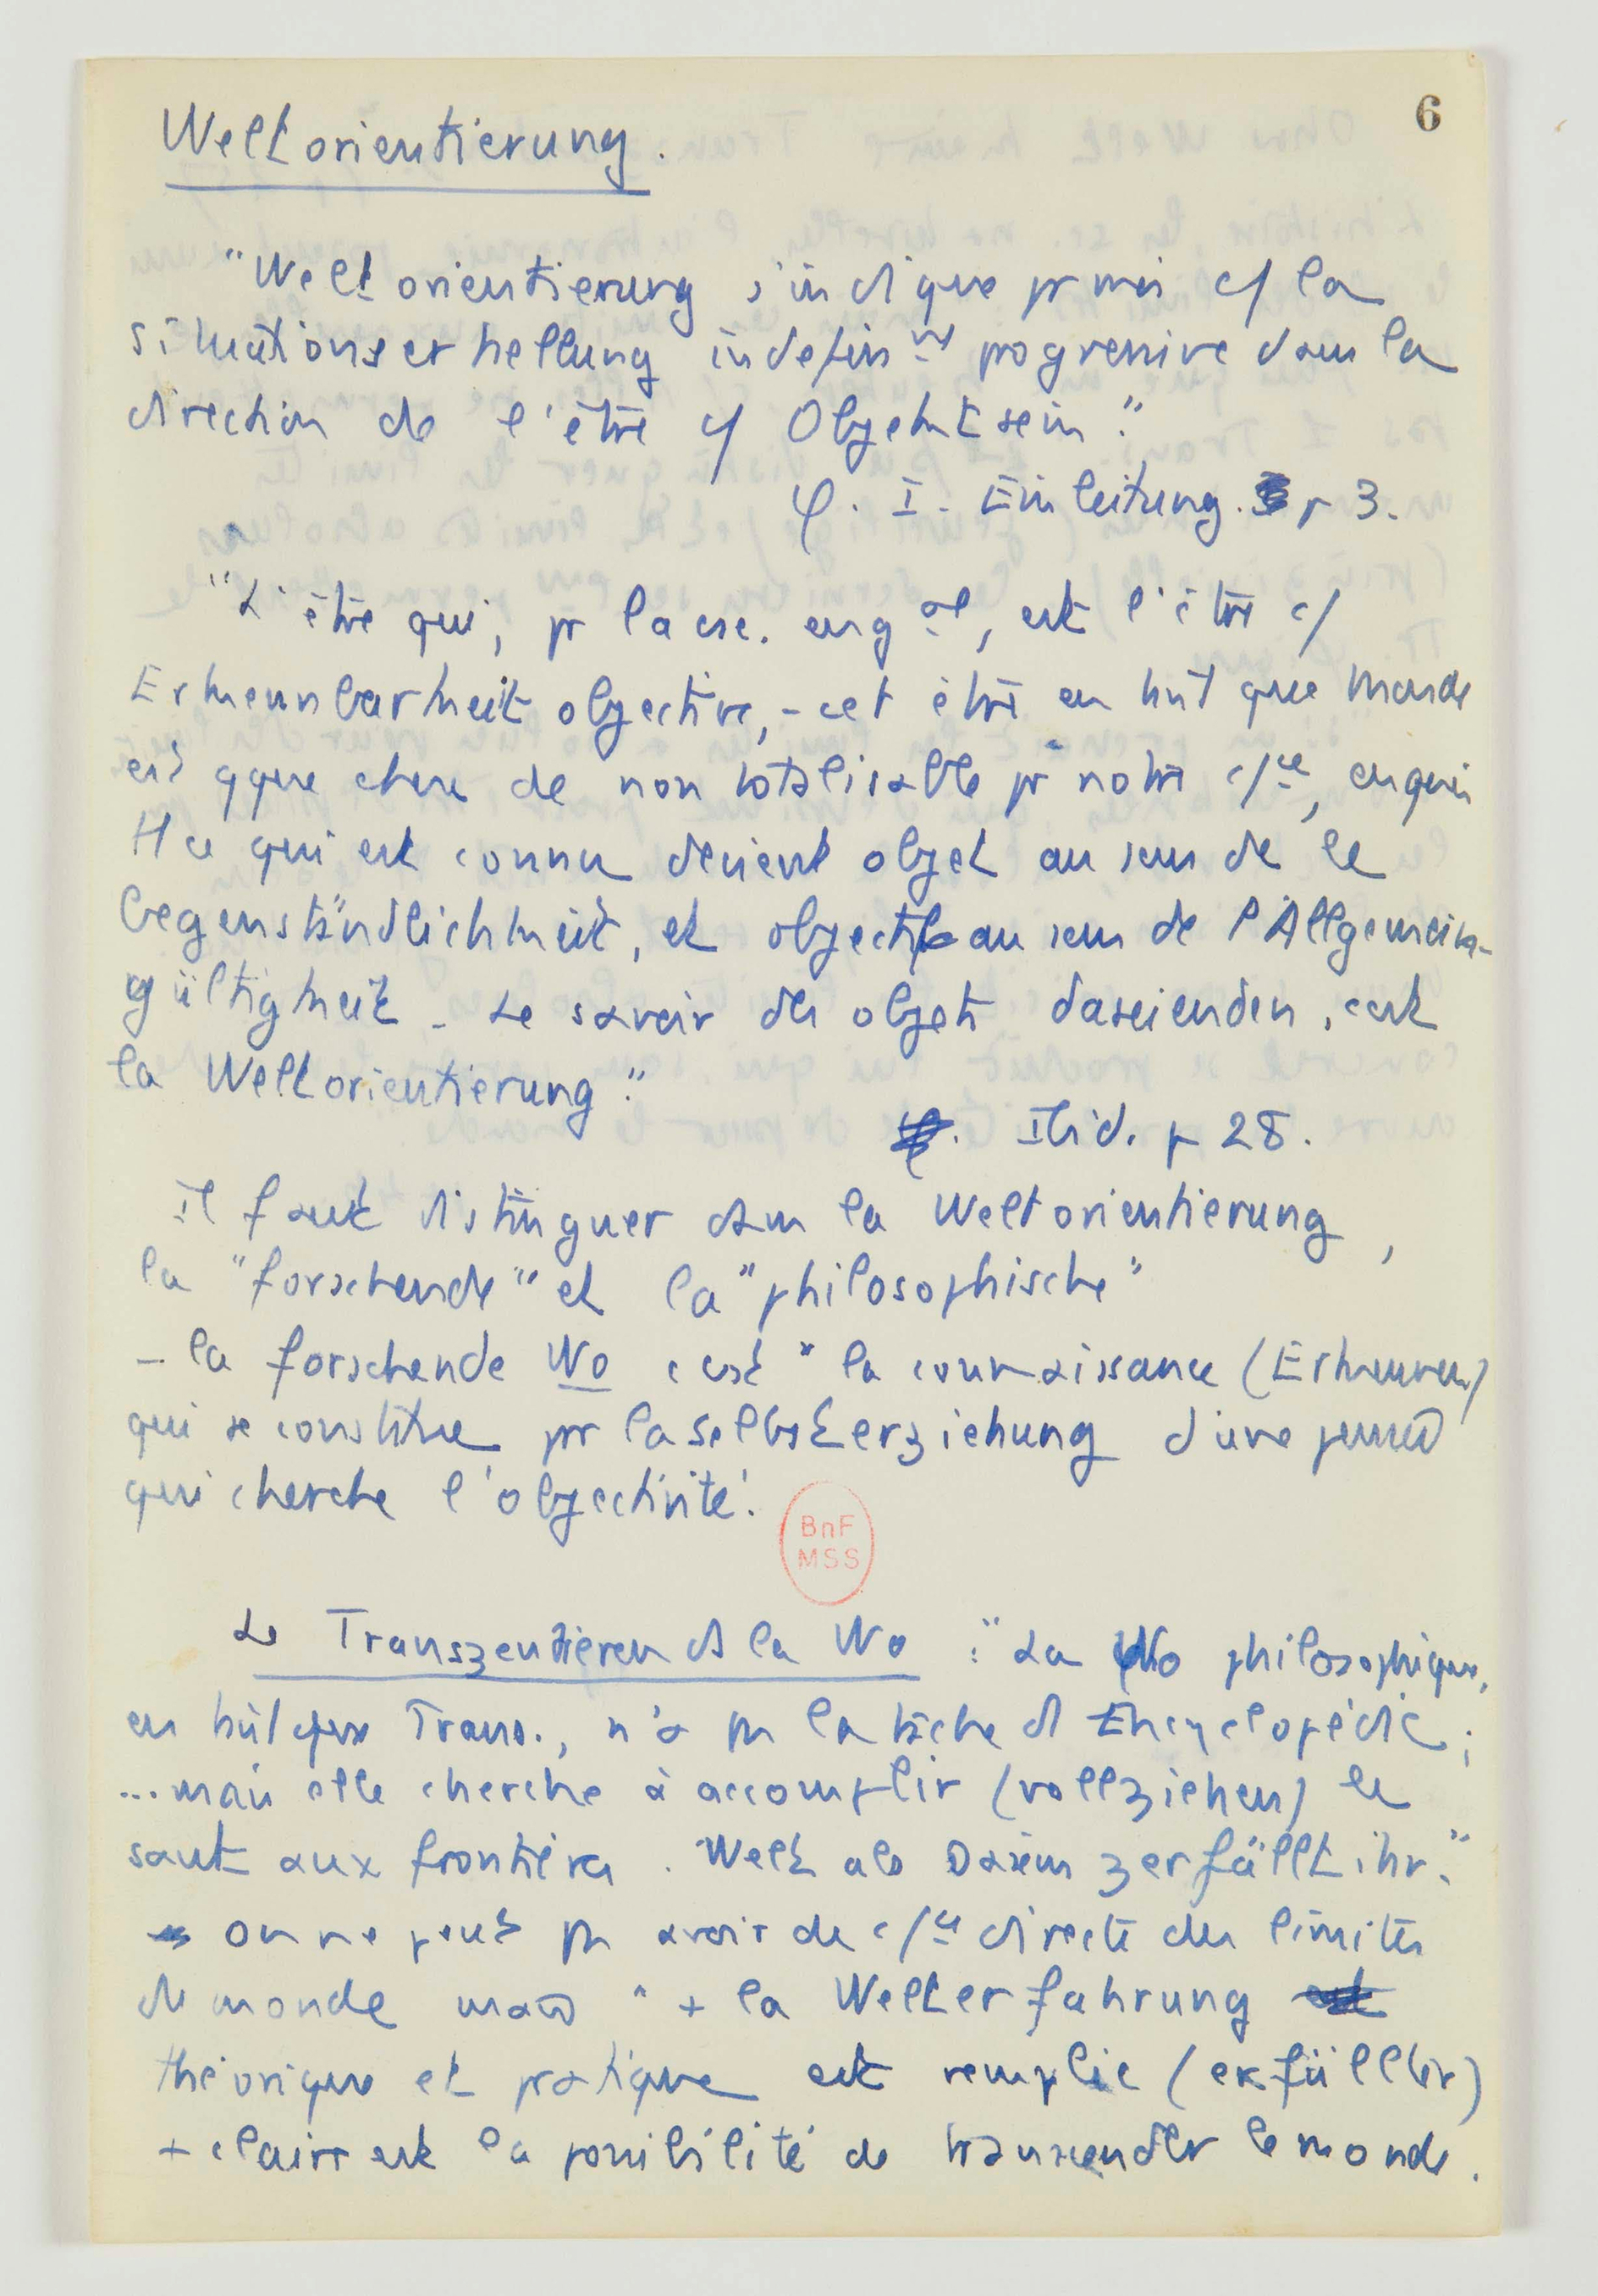 6
Weltorientierung.
"Weltorientierung s'indique pr moi c/ la
situationserhellung indefin^nt progressive dans la
direction de l'être c/ Objektsein".
φ. I. Einleitung. p 3.
"L'être qui, pr la csc. en g^al, est l'être c/
Erkennbarkeit objective, - cet être en tant que Monde
est qque chose de non totalisable pr notre c/ce, en qui
tt ce qui est connu devient objet au sens de le
Gegenständlichkeit, et objectif au sens de l'Allgemein-
gültigkeit - Le savoir des objets daseienden, c'est
la Weltorientierung".
Ibid. p 28.
Il faut distinguer dans la Weltorientierung,
la "forschende" et la "philosophische"
- la forschende Wo c'est "la connaissance (Erkennen)
qui se constitue par la Selbsterziehung d'une pensée
qui cherche l'objectivité".
BnF
MSS
Le Transzendieren ds la Wo : "La Wo philosophique,
en tant que Trans., n'a pas la tâche d'Encyclopédie ;
... mais elle cherche à accomplir (vollziehen) le
saut aux frontières. Welt als Dasein zerfällt ihr."
On ne peut pas avoir de c/ce directe des limites
du monde mais " + la Welterfahrung
théorique et pratique est remplie (erfüllter)
+ claire est la possibilité de transcender le monde.